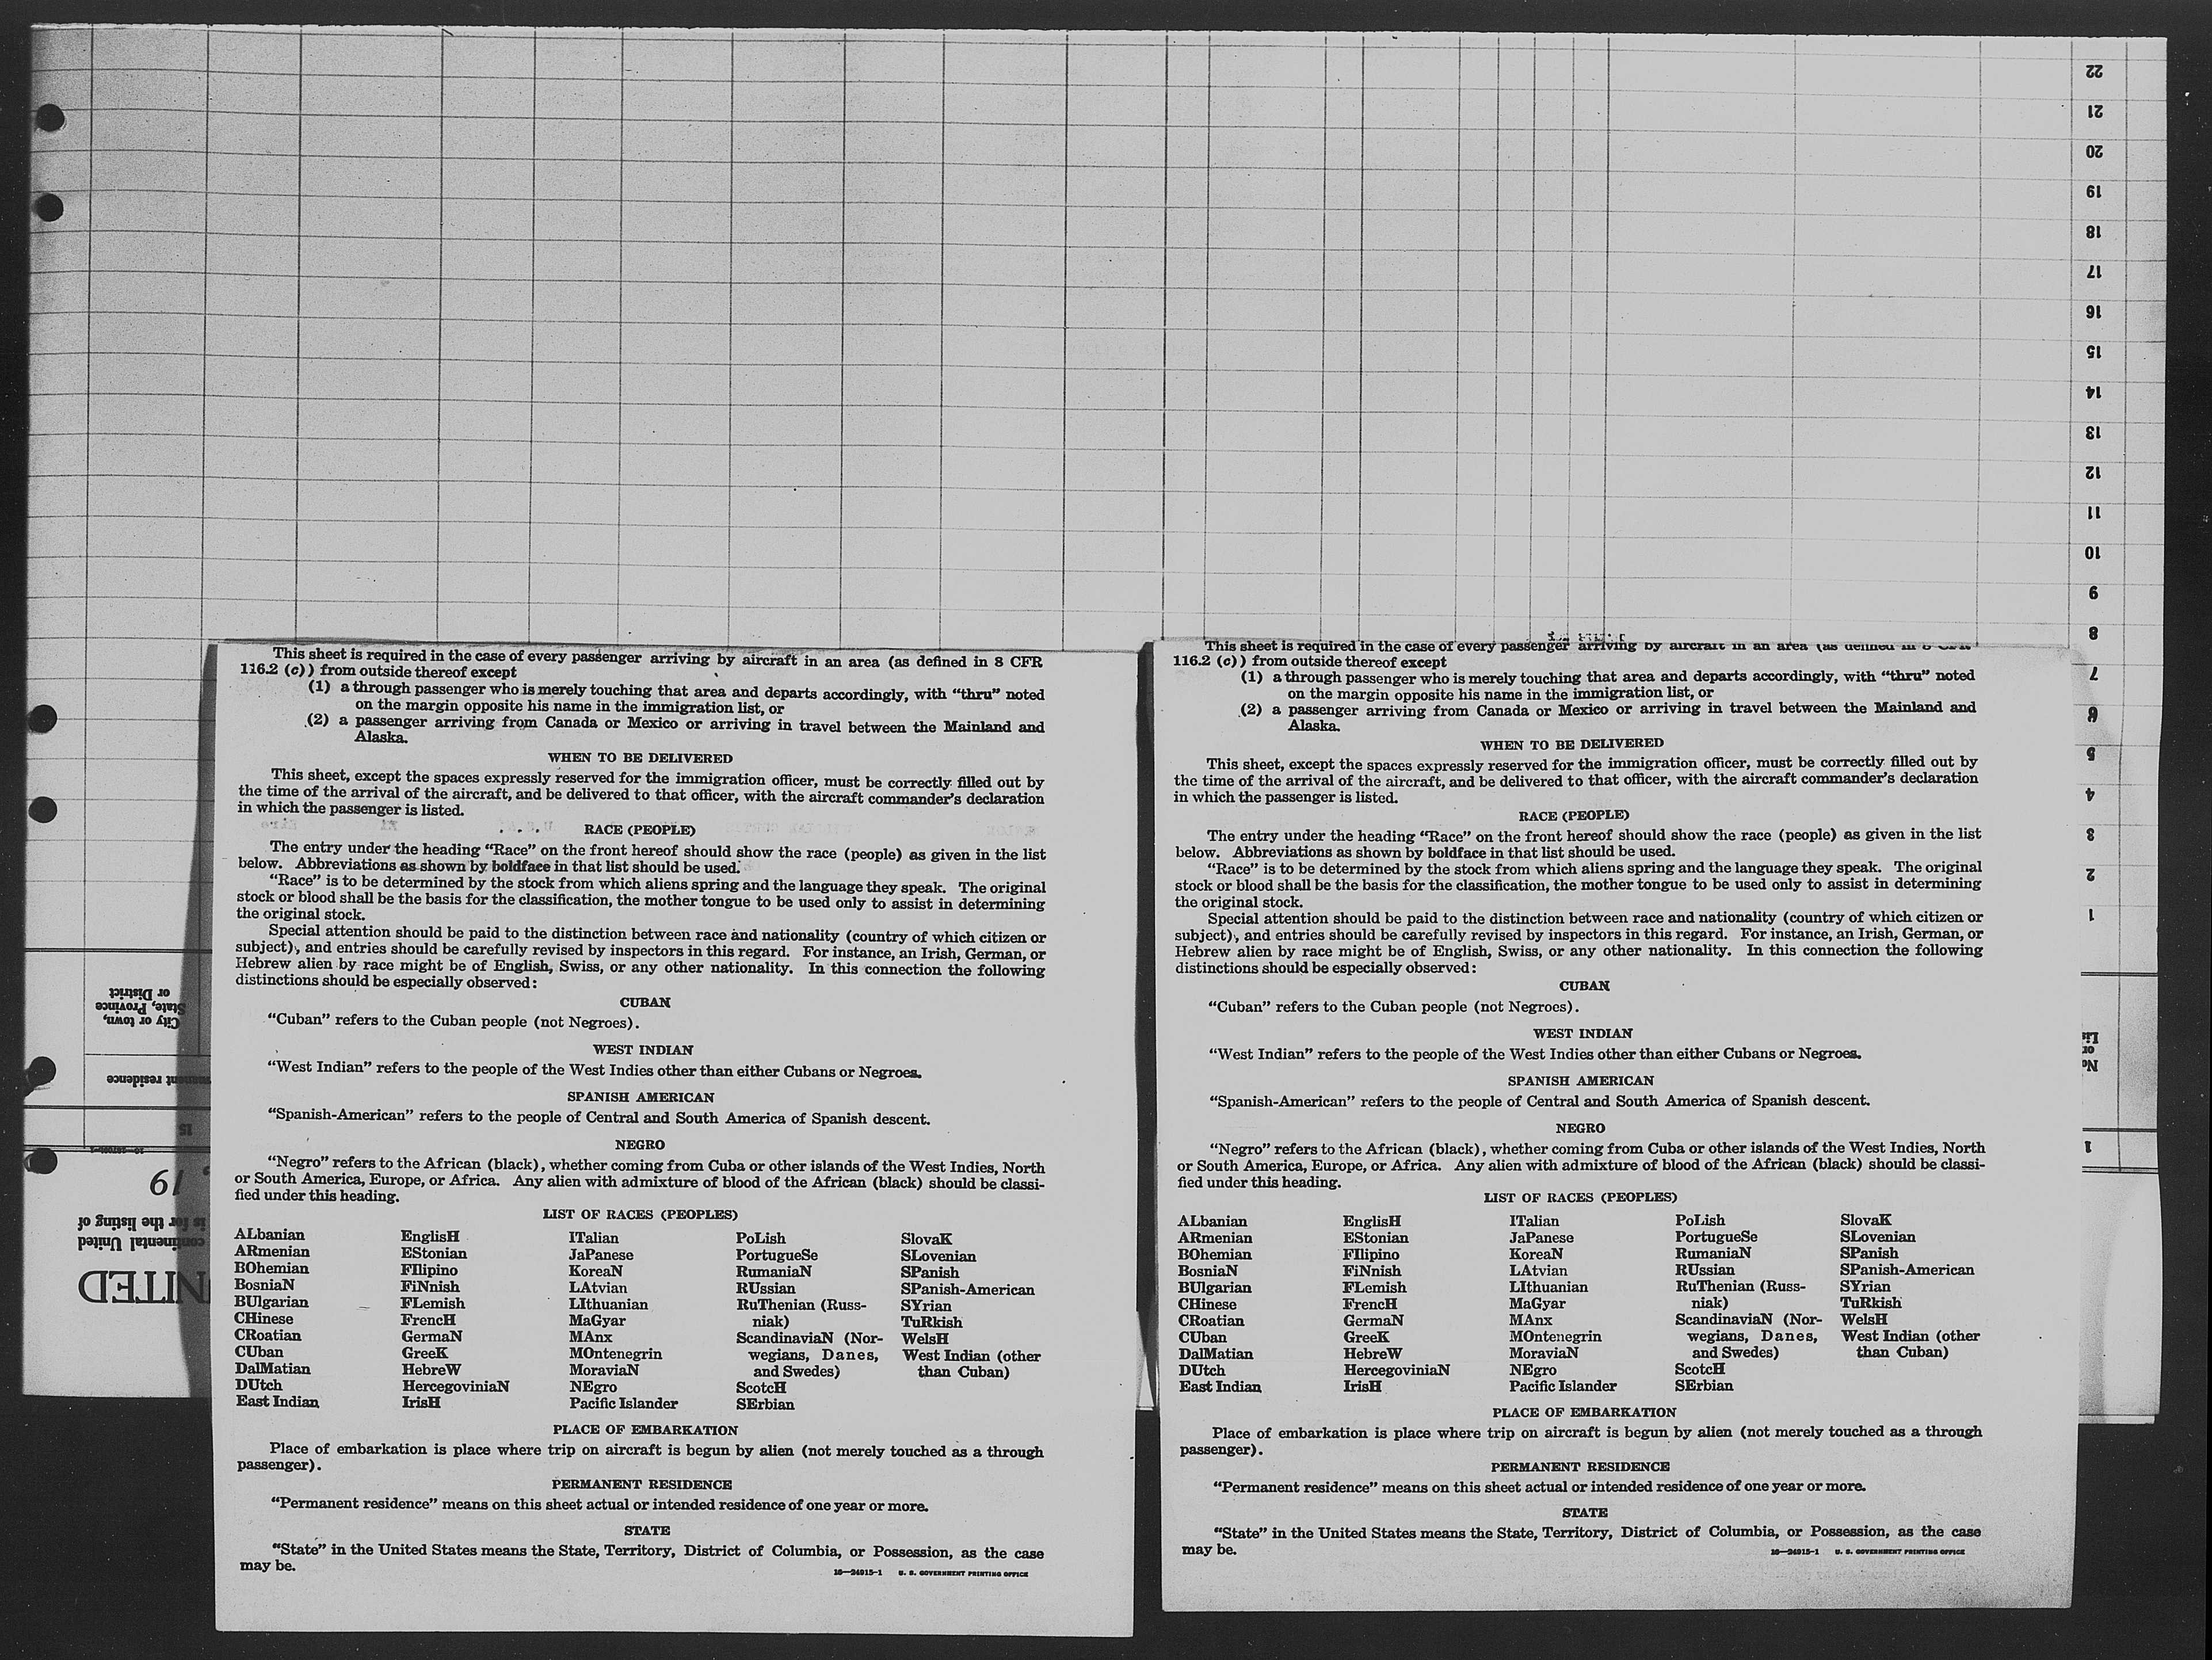 22
21
20
19
18
17
16
15
14
13
12
11
10
9
8
7
6
5
4
3
2
1
This sheet is required in the case of every passenger arriving by aircraft in an area (as defined in 8 CFR
116.2 (c)) from outside thereof except
(1) a through passenger who is merely touching that area and departs accordingly, with “thru” noted
on the margin opposite his name in the immigration list, or
(2) a passenger arriving from Canada or Mexico or arriving in travel between the Mainland and
Alaska.
WHEN TO BE DELIVERED
This sheet, except the spaces expressly reserved for the immigration officer, must be correctly filled out by
the time of the arrival of the aircraft, and be delivered to that officer, with the aircraft commander’s declaration
in which the passenger is listed.
RACE (PEOPLE)
The entry under the heading “Race” on the front hereof should show the race (people) as given in the list
below. Abbreviations as shown by boldface in that list should be used.
“Race” is to be determined by the stock from which aliens spring and the language they speak. The original
stock or blood shall be the basis for the classification, the mother tongue to be used only to assist in determining
the original stock.
Special attention should be paid to the distinction between race and nationality (country of which citizen or
subject), and entries should be carefully revised by inspectors in this regard. For instance, an Irish, German, or
Hebrew alien by race might be of English, Swiss, or any other nationality. In this connection the following
distinctions should be especially observed:
CUBAN
“Cuban” refers to the Cuban people (not Negroes).
WEST INDIAN
“West Indian” refers to the people of the West Indies other than either Cubans or Negroes.
SPANISH AMERICAN
“Spanish-American” refers to the people of Central and South America of Spanish descent.
NEGRO
“Negro” refers to the African (black), whether coming from Cuba or other islands of the West Indies, North
or South America, Europe, or Africa. Any alien with admixture of blood of the African (black) should be classi-
fied under this heading.
LIST OF RACES (PEOPLES)
ALbanian
ARmenian
BOhemian
BosniaN
BUlgarian
CHinese
CRoatian
CUban
DalMatian
DUtch
East Indian
EnglisH
EStonian
FIlipino
FiNnish
FLemish
FrencH
GermaN
GreeK
HebreW
HercegoviniaN
IrisH
ITalian
JaPanese
KoreaN
LAtvian
LIthuanian
MaGyar
MAnx
MOntenegrin
MoraviaN
NEgro
Pacific Islander
PoLish
PortugueSe
RumaniaN
RUssian
RuThenian (Russ-
niak)
ScandinaviaN (Nor-
wegians, Danes,
and Swedes)
ScotcH
SErbian
SlovaK
SLovenian
SPanish
SPanish-American
SYrian
TuRkish
WelsH
West Indian (other
than Cuban)
PLACE OF EMBARKATION
Place of embarkation is place where trip on aircraft is begun by alien (not merely touched as a through
passenger).
PERMANENT RESIDENCE
“Permanent residence” means on this sheet actual or intended residence of one year or more.
STATE
“State” in the United States means the State, Territory, District of Columbia, or Possession, as the case
may be.
16—24915-1 U. S. GOVERNMENT PRINTING OFFICE
This sheet is required in the case of every passenger arriving by aircraft in an area (as defined in 8 CFR
116.2 (c)) from outside thereof except
(1) a through passenger who is merely touching that area and departs accordingly, with “thru” noted
on the margin opposite his name in the immigration list, or
(2) a passenger arriving from Canada or Mexico or arriving in travel between the Mainland and
Alaska.
WHEN TO BE DELIVERED
This sheet, except the spaces expressly reserved for the immigration officer, must be correctly filled out by
the time of the arrival of the aircraft, and be delivered to that officer, with the aircraft commander’s declaration
in which the passenger is listed.
RACE (PEOPLE)
The entry under the heading “Race” on the front hereof should show the race (people) as given in the list
below. Abbreviations as shown by boldface in that list should be used.
“Race” is to be determined by the stock from which aliens spring and the language they speak. The original
stock or blood shall be the basis for the classification, the mother tongue to be used only to assist in determining
the original stock.
Special attention should be paid to the distinction between race and nationality (country of which citizen or
subject), and entries should be carefully revised by inspectors in this regard. For instance, an Irish, German, or
Hebrew alien by race might be of English, Swiss, or any other nationality. In this connection the following
distinctions should be especially observed:
CUBAN
“Cuban” refers to the Cuban people (not Negroes).
WEST INDIAN
“West Indian” refers to the people of the West Indies other than either Cubans or Negroes.
SPANISH AMERICAN
“Spanish-American” refers to the people of Central and South America of Spanish descent.
NEGRO
“Negro” refers to the African (black), whether coming from Cuba or other islands of the West Indies, North
or South America, Europe, or Africa. Any alien with admixture of blood of the African (black) should be classi-
fied under this heading.
LIST OF RACES (PEOPLES)
ALbanian
ARmenian
BOhemian
BosniaN
BUlgarian
CHinese
CRoatian
CUban
DalMatian
DUtch
East Indian
EnglisH
EStonian
FIlipino
FiNnish
FLemish
FrencH
GermaN
GreeK
HebreW
HercegoviniaN
IrisH
ITalian
JaPanese
KoreaN
LAtvian
LIthuanian
MaGyar
MAnx
MOntenegrin
MoraviaN
NEgro
Pacific Islander
PoLish
PortugueSe
RumaniaN
RUssian
RuThenian (Russ-
niak)
ScandinaviaN (Nor-
wegians, Danes,
and Swedes)
ScotcH
SErbian
SlovaK
SLovenian
SPanish
SPanish-American
SYrian
TuRkish
WelsH
West Indian (other
than Cuban)
PLACE OF EMBARKATION
Place of embarkation is place where trip on aircraft is begun by alien (not merely touched as a through
passenger).
PERMANENT RESIDENCE
“Permanent residence” means on this sheet actual or intended residence of one year or more.
STATE
“State” in the United States means the State, Territory, District of Columbia, or Possession, as the case
may be.
16—24915-1 U. S. GOVERNMENT PRINTING OFFICE
NITED
continental United
is for the listing of
, 19
15
residence
City or town,
State, Province
or District
1
No.
or